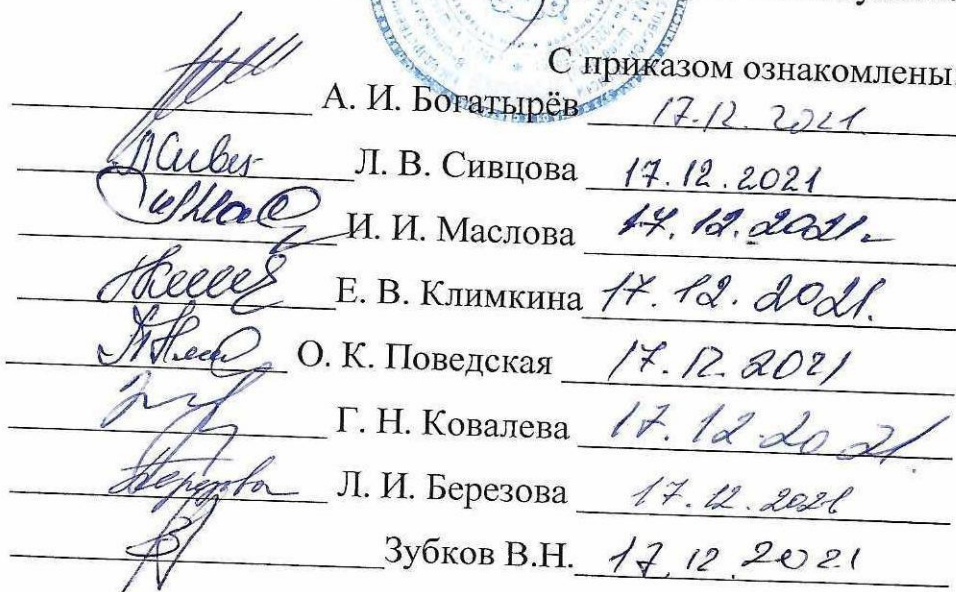 С приказом ознакомлены:
А. И. Богатырёв 17.12.2021
Л. В. Сивцова 17.12.2021
И. И. Маслова 17.12.2021.
Е. В. Климкина 17.12.2021.
О. К. Поведская 17.12.2021
Г. Н. Ковалева 17.12.2021
Л. И. Березова 17.12.2021
Зубков В.Н. 17.12.2021